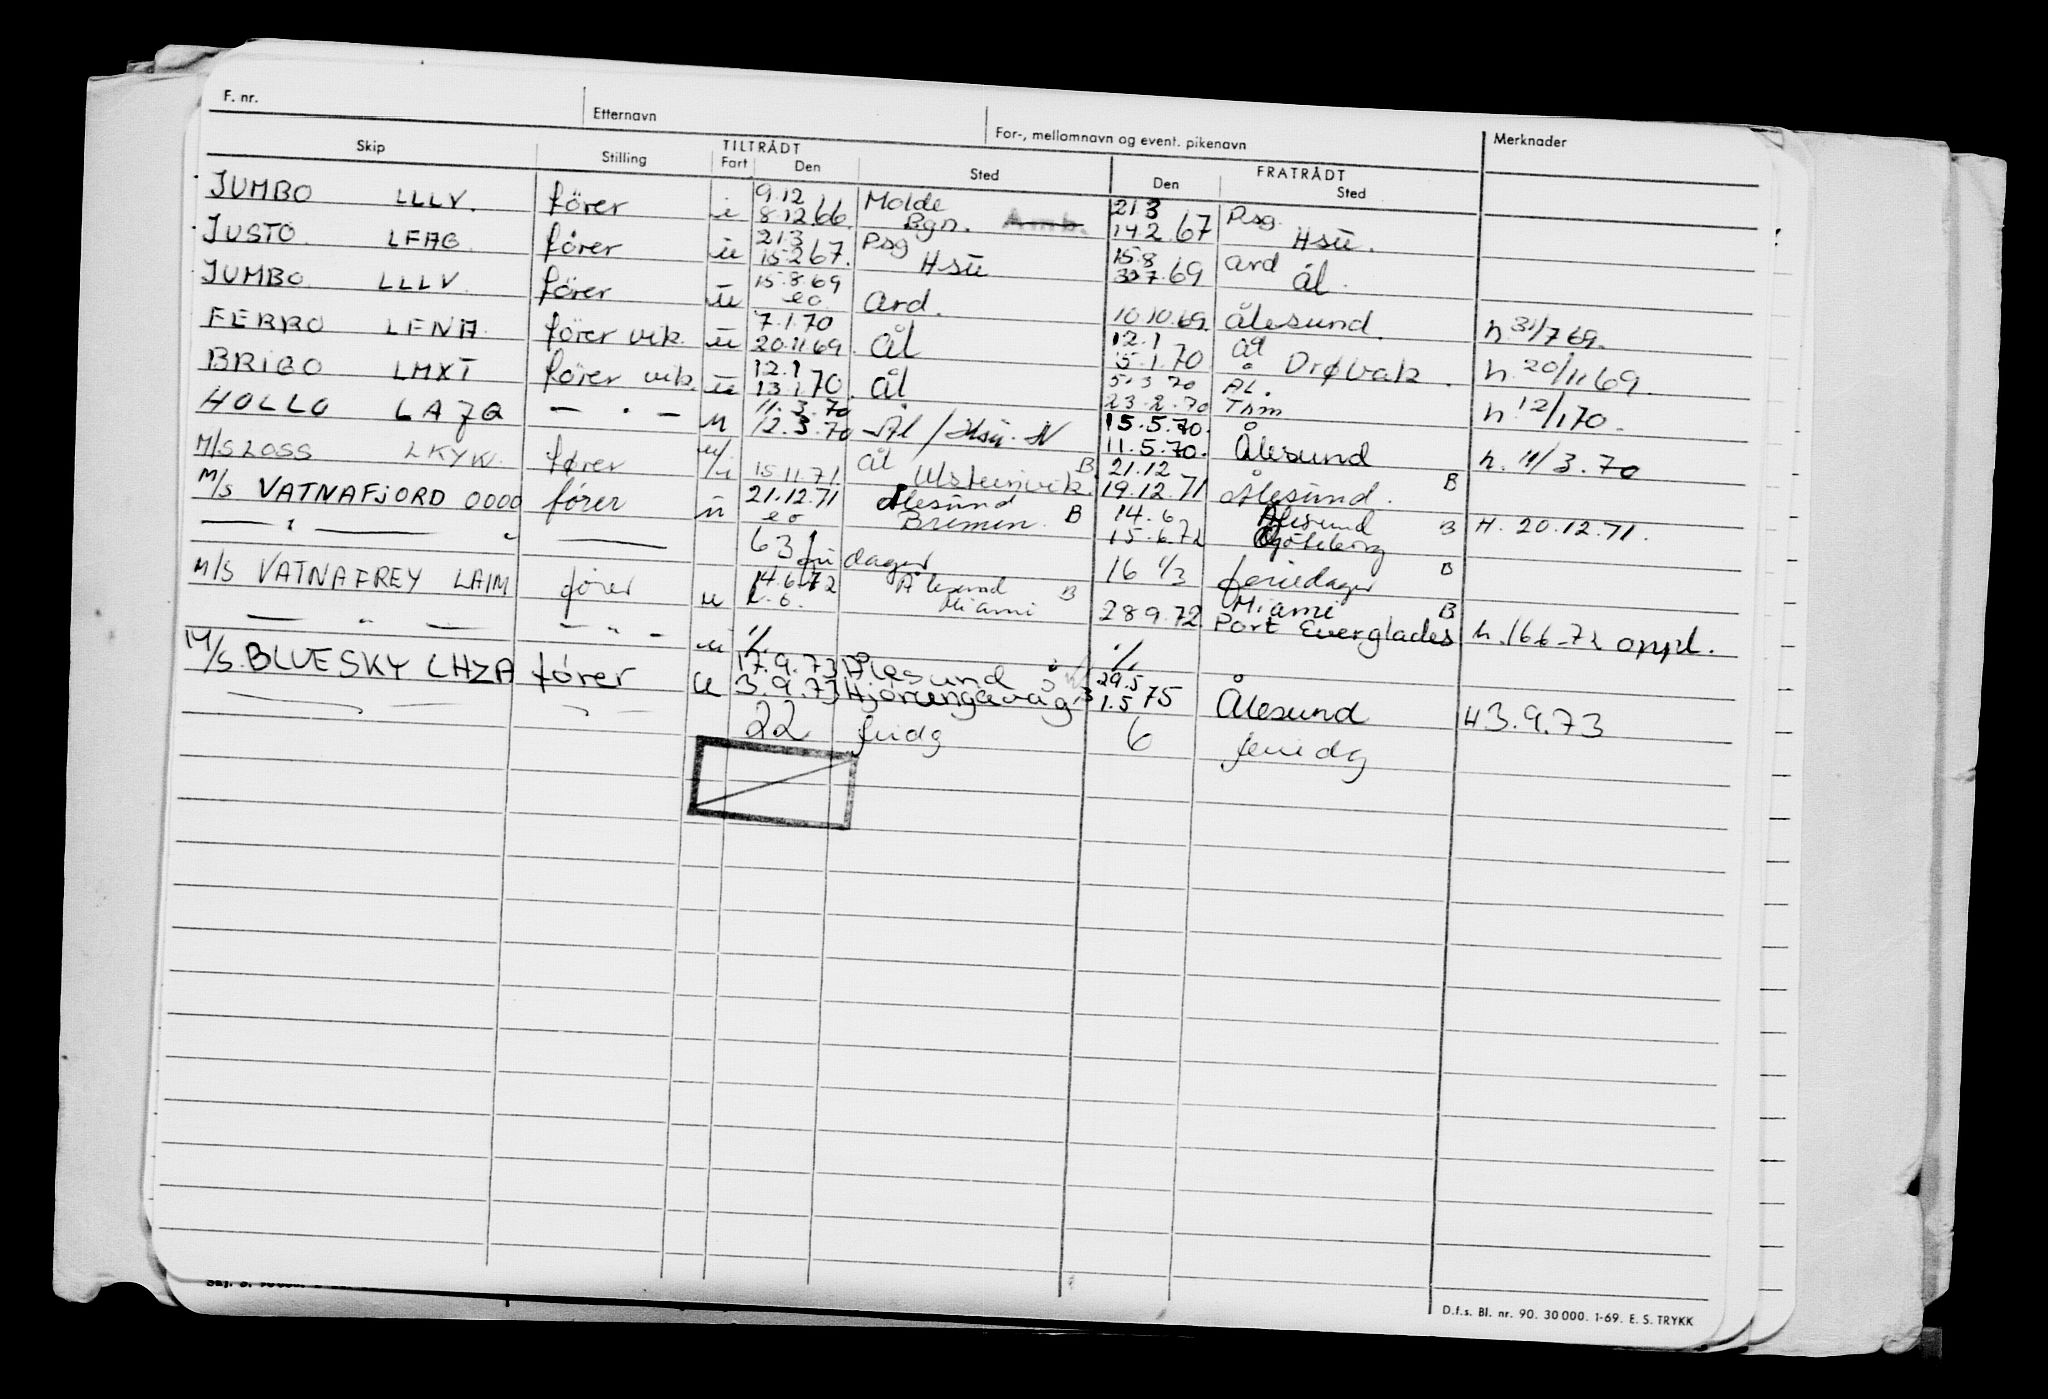 F. nr. Etternavn For-, mellomnavn og event. pikenavn Merknader
Skip Stilling TILTRÅDT Fart Den Sted FRATRÅDT Den Sted
JUMBO LLLV. fører u 9.12 8.12 66. Molde Bgn. 21.3 14.2.67 Psg. Hsü.
JUSTO. LFAG fører u 21.3 15.2 67. Psg Hsü 15.8 30.7.69 Ard Ål.
JUMBO LLLV. fører u 15.8.69 eo Ard. 10.10.69. Ålesund. h 31/7 69.
FERRO LFNA fører vik. u 7.1.70 20.11.69. Ål 12.1 5.1.70 Ål Drøbak. h. 20/11 69.
BRIBO LMXI fører vik. u 12.1 13.1.70. Ål 5.3.70 23.2.70 ÅL. Thm h 12/1 70.
HOLLO LAJQ — " — u 11.3.70 12.3.70 Ål / Hsü. N 15.5.70. 11.5.70. Ålesund h. 11/3.70
M/S LOSS LKYW. fører u/u 15.11.71. Ål Ulsteinvik. B 21.12 19.12.71 Ålesund. B
M/S VATNAFJORD OOOO fører u 21.12.71 eo Ålesund Bremen. B 14.6 15.6.72 Ålesund Göteborg B H. 20.12.71.
— " — " — 63 fridager 16 1/3 feriedager B
M/S VATNAFREY LAIM fører u 14.6.72 Ålesund Miami B 28.9.72. Miami Port Everglades B h. 16.6.72 oppl.
— " — — " — u ./. ./.
M/S. BLUESKY LHZA fører u 17.9.73 3.9.73 Ålesund Hjørungavåg 29.5 1.5 75 Ålesund H 3.9.73
22 fridg 6 feridg
D.f.s. Bl. nr. 90. 30 000. 1-69. E. S. TRYKK